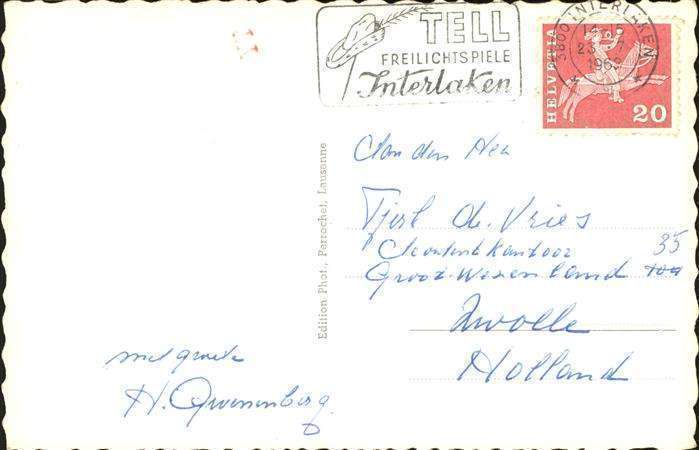 TELL
FREILICHTSPIELE
Interlaken
3800 INTERLAKEN
23
196
HELVETIA
20
Edition Phot., Perrochet, Lausanne
Aan den Heer
Tjerk de Vries
kantoor 35
Groot Wezenland
Zwolle
Holland
met groeten
H.